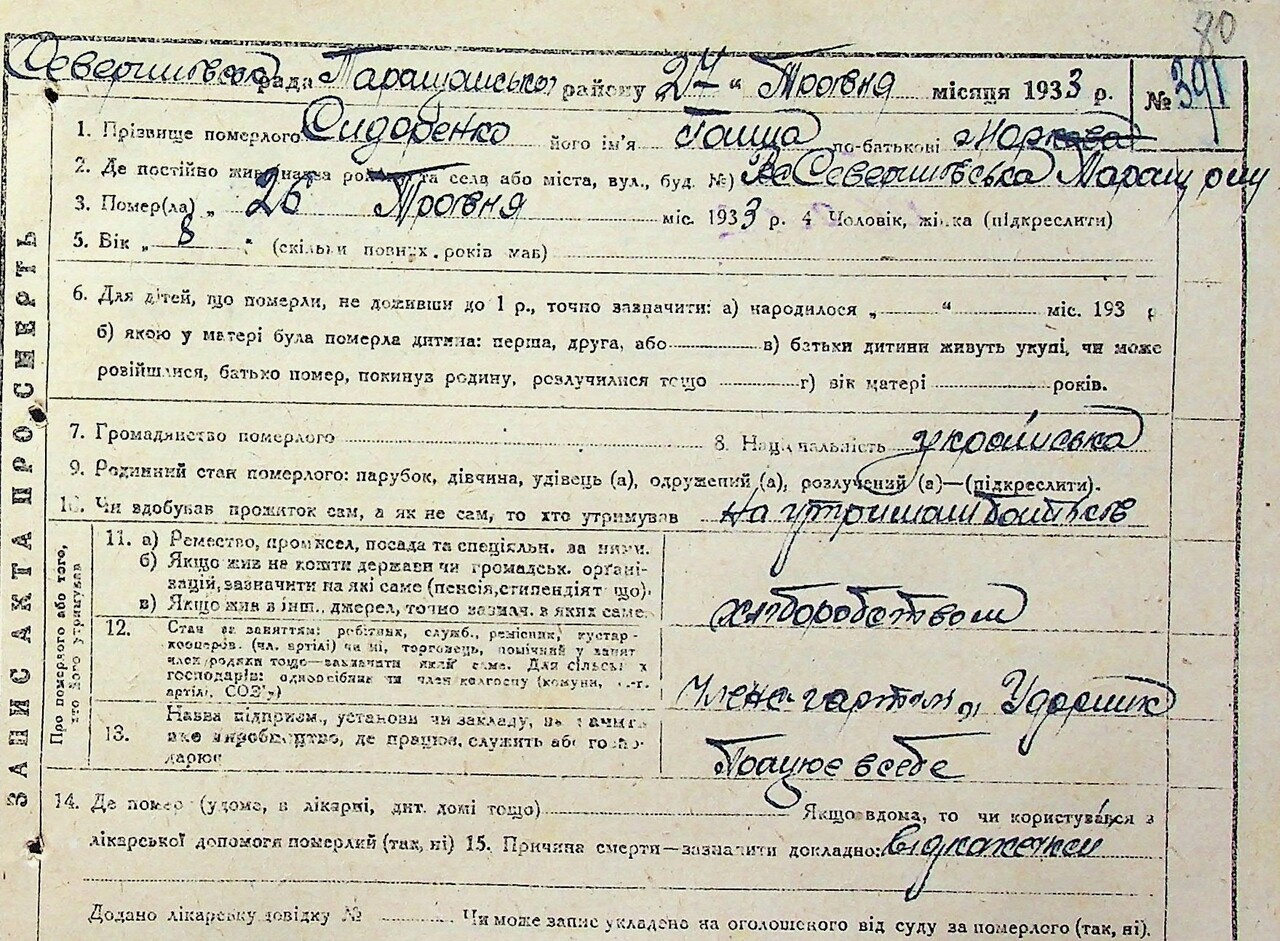 80
рада Таращанського району „24 “ Травня місяця 1933 р. № 391
1. Прізвище померлого Сидоренко його ім'я Ганна по-батькові
2. Де постійно жив(ла) та села або міста, вул., буд. №)
3. Помер(ла) „ 26 Травня міс. 1933 р. 4 Чоловік, жінка (підкреслити)
5. Вік „ 8 “ (скільки повних років мав)
6. Для дітей, що померли, не доживши до 1 р., точно зазначити: а) народилося „ “ міс. 193 р
б) якою у матері була померла дитина: перша, друга, або в) батьки дитини живуть укупі, чи може
розійшлися, батько помер, покинув родину, розлучилися тощо г) вік матері років.
7. Громадянство померлого 8. Національність українська
9. Родинний стан померлого: парубок, дівчина, удівець (а), одружений (а), розлучений (а)—(підкреслити).
10. Чи здобував прожиток сам, а як не сам, то хто утримував на утриманні батьків
ЗАПИС АКТА ПРО СМЕРТЬ
Про померлого або того, хто його утримував
11. а) Ремество, промисел, посада та спеціяльн. за ними.
б) Якщо жив на кошти держави чи громадськ. органі-
зацій, зазначити на які саме (пенсія, стипендіят що).
в) Якщо жив з інш. джерел, точно зазнач. в яких саме
хліборобством
12. Стан за заняттям: робітник, служб., ремісник, кустар-
кооперов. (чл. артілі) чи ні, торговець, помічний у занят
член родини тощо—зазначати який саме. Для сільськ х
господарів: одноосібник чи член колгоспу (комуна,
артілі, СОЗ'у)
Члена гартіли „ Ударник
13. Назва підприєм., установи чи закладу,
яке виробництво, де працює, служить або госпо-
дарює
Працює в себе
14. Де помер (удома, в лікарні, дит. домі тощо) Якщо вдома, то чи користувався з
лікарської допомоги померлий (так, ні) 15. Причина смерти—зазначити докладно:
Додано лікарську довідку № Чи може запис укладено на оголошеного від суду за померлого (так, ні).